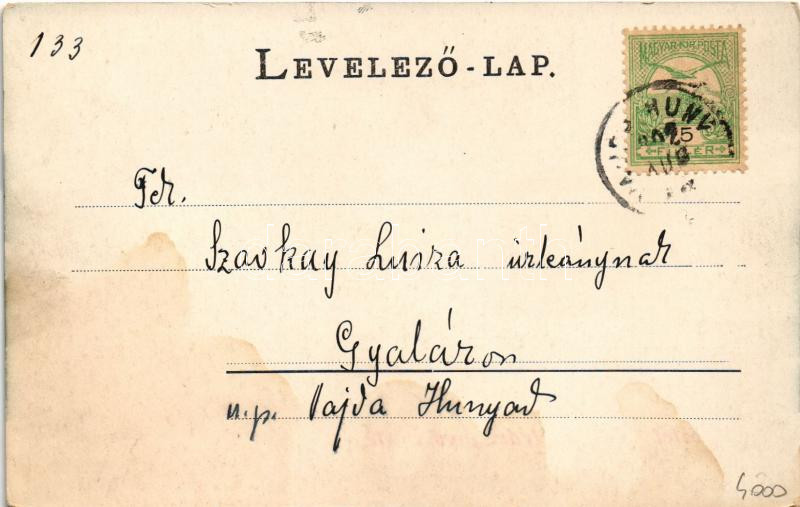 133
LEVELEZŐ-LAP.
MAGYAR KIR. POSTA
5
FILLÉR
HUNY
902
AUG
Szavkay Luiza úrleánynak
Gyaláron
u.p. Vajda Hunyad
4000